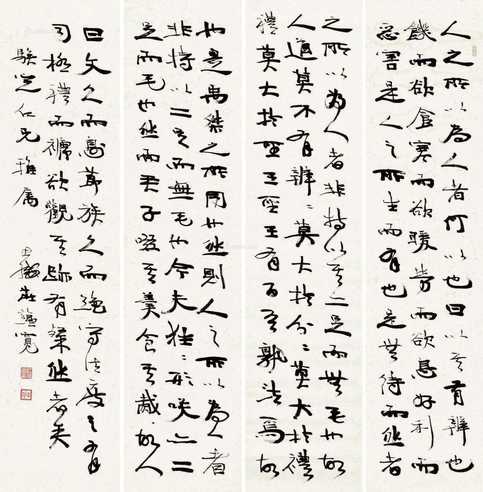 人之所以為人者何以也曰以其有辨也
饑而欲食寒而欲暖勞而欲息好利而
惡害是人之所生而有也是無待而然者
之所以為人者非特以其二足而無毛也故
人道莫不有辨辨莫大於分分莫大於禮
禮莫大於聖王聖王有百吾孰法焉故
也是禹桀之所同也然則人之所以為人者
非特以二足而無毛也今夫狌狌形笑亦二
足而毛也然而君子啜其羹食其胾故人
曰文久而息節族久而絕守法度之有
司極禮而褫欲觀其跡有粲然者矣
仁兄雅屬